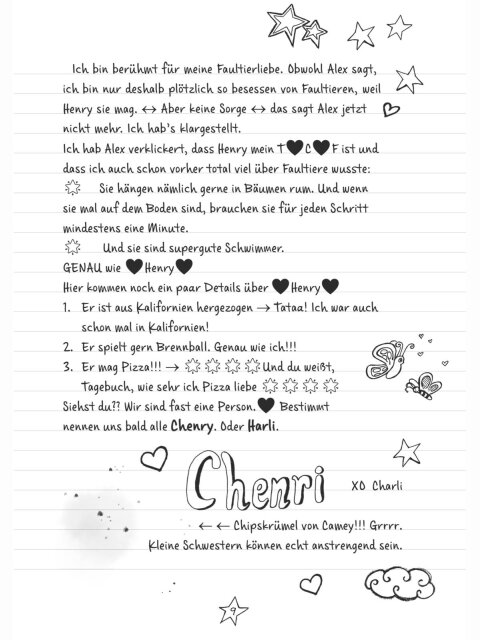 Ich bin berühmt für meine Faultierliebe. Obwohl Alex sagt,
ich bin nur deshalb plötzlich so besessen von Faultieren, weil
Henry sie mag. ↔ Aber keine Sorge ↔ das sagt Alex jetzt
nicht mehr. Ich hab's klargestellt.
Ich hab Alex verklickert, dass Henry mein T♥C♥F ist und
dass ich auch schon vorher total viel über Faultiere wusste:
Sie hängen nämlich gerne in Bäumen rum. Und wenn
sie mal auf dem Boden sind, brauchen sie für jeden Schritt
mindestens eine Minute.
Und sie sind supergute Schwimmer.
GENAU wie ♥Henry♥
Hier kommen noch ein paar Details über ♥Henry♥
1. Er ist aus Kalifornien hergezogen → Tataa! Ich war auch
schon mal in Kalifornien!
2. Er spielt gern Brennball. Genau wie ich!!!
3. Er mag Pizza!!! → Und du weißt,
Tagebuch, wie sehr ich Pizza liebe
Siehst du?? Wir sind fast eine Person.♥ Bestimmt
nennen uns bald alle Chenry. Oder Harli.
Chenri
XO Charli
← ← Chipskrümel von Camey!!! Grrrr.
Kleine Schwestern können echt anstrengend sein.
9